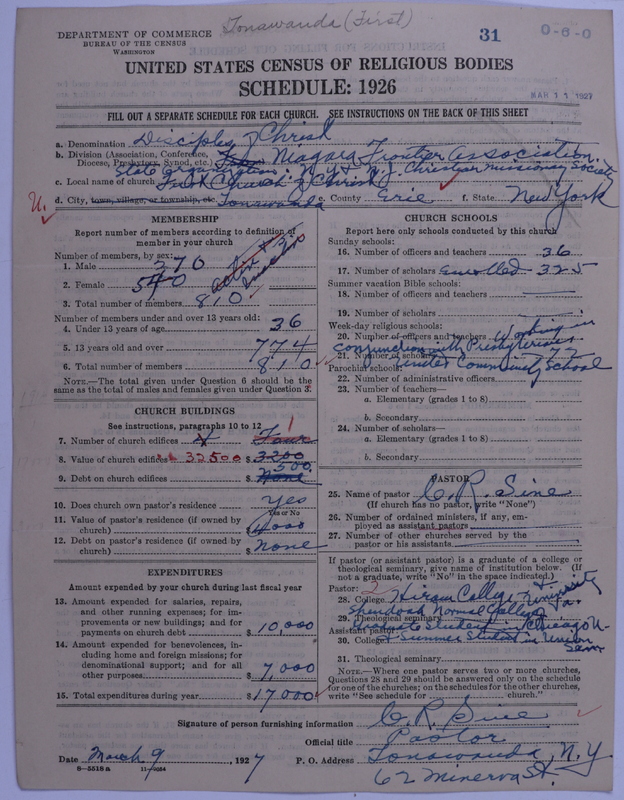 Tonawanda (First)
DEPARTMENT OF COMMERCE
BUREAU OF THE CENSUS
WASHINGTON
31
0-6-0
UNITED STATES CENSUS OF RELIGIOUS BODIES
SCHEDULE: 1926
MAR 11 1927
FILL OUT A SEPARATE SCHEDULE FOR EACH CHURCH. SEE INSTRUCTIONS ON THE BACK OF THIS SHEET
a. Denomination Disciples of Christ
b. Division (Association, Conference, Diocese, Presbytery, Synod, etc.) Niagara Frontier Association.
State Organization: N.Y. & N.J. Christian Missionary Society
c. Local name of church First Church of Christ
d. City, town, village, or township, etc. Tonawanda e. County Erie f. State New York
MEMBERSHIP
Report number of members according to definition of member in your church
Number of members, by sex:
1. Male 270
2. Female 540
3. Total number of members 810
Number of members under and over 13 years old:
4. Under 13 years of age 36
5. 13 years old and over 774
6. Total number of members 810
NOTE.—The total given under Question 6 should be the same as the total of males and females given under Question 3.
CHURCH BUILDINGS
See instructions, paragraphs 10 to 12
7. Number of church edifices 1
8. Value of church edifices 32500 $ 3200
9. Debt on church edifices $ None 500
10. Does church own pastor's residence Yes
Yes or No
11. Value of pastor's residence (if owned by church) $
12. Debt on pastor's residence (if owned by church) $ None
EXPENDITURES
Amount expended by your church during last fiscal year
13. Amount expended for salaries, repairs, and other running expenses; for improvements or new buildings; and for payments on church debt $ 10,000
14. Amount expended for benevolences, including home and foreign missions; for denominational support; and for all other purposes $ 7,000
15. Total expenditures during year $ 17,000
CHURCH SCHOOLS
Report here only schools conducted by this church
Sunday schools:
16. Number of officers and teachers 36
17. Number of scholars Enrolled 325
Summer vacation Bible schools:
18. Number of officers and teachers
19. Number of scholars
Week-day religious schools:
20. Number of officers and teachers Working in
conjunction with Presbyterians
21. Number of scholars
Community School
Parochial schools:
22. Number of administrative officers
23. Number of teachers—
a. Elementary (grades 1 to 8)
b. Secondary
24. Number of scholars—
a. Elementary (grades 1 to 8)
b. Secondary
PASTOR
25. Name of pastor C. R. Sine
(If church has no pastor, write "None")
26. Number of ordained ministers, if any, employed as assistant pastors
27. Number of other churches served by the pastor or his assistants
If pastor (or assistant pastor) is a graduate of a college or theological seminary, give name of institution below. (If not a graduate, write "No" in the space indicated.)
Pastor:
28. College Hiram College &
Normal College
29. Theological seminary
Graduate Student in Chicago U-
Assistant pastor:
30. College & Summer Student in Union
Sem
31. Theological seminary
NOTE.—Where one pastor serves two or more churches, Questions 28 and 29 should be answered only on the schedule for one of the churches; on the schedules for the other churches, write "See schedule for church."
Signature of person furnishing information C. R. Sine
Official title Pastor
Date March 9, 1927 P. O. Address Tonawanda, N.Y.
8—5518a 11—9034
62 Minerva St.